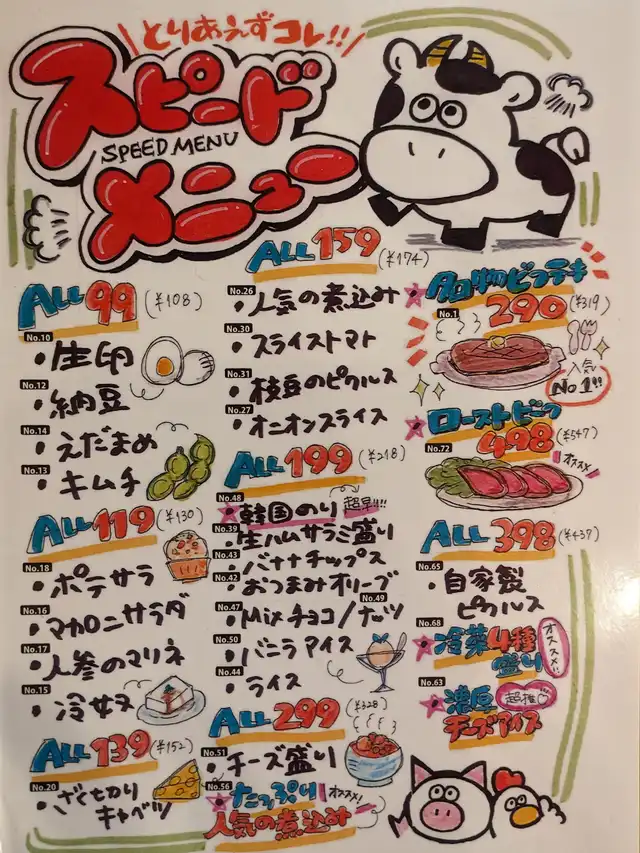 とりあえずコレ!!
スピード
SPEED MENU
メニュー
ALL 99 (¥108)
No.10
・生卵
No.12
・納豆
No.14
・えだまめ
No.13
・キムチ
ALL 119 (¥130)
No.18
・ポテサラ
No.16
・マカロニサラダ
No.17
・人参のマリネ
No.15
・冷奴
ALL 139 (¥152)
No.20
・ざく切り
キャベツ
ALL 159 (¥174)
No.26
・人気の煮込み
No.30
・スライストマト
No.31
・枝豆のピクルス
No.27
・オニオンスライス
ALL 199 (¥218)
No.48
韓国のり 超早!!!
No.39
・生ハムサラミ盛り
No.43
・バナナチップス
No.42
・おつまみオリーブ
No.47 No.49
・Mixチョコ/ナッツ
No.50
・バニラアイス
No.44
・ライス
ALL 299 (¥328)
No.51
・チーズ盛り
No.56
たっぷり オススメ!
人気の煮込み
ビフテキ
No.1
290 (¥319)
人気
No.1!!
ローストビーフ
No.72
498 (¥547)
オススメ!
ALL 398 (¥437)
No.65
・自家製
ピクルス
No.68
冷菜4種
盛り
オススメ!!
No.63
濃厚 超推♡
チーズアイス